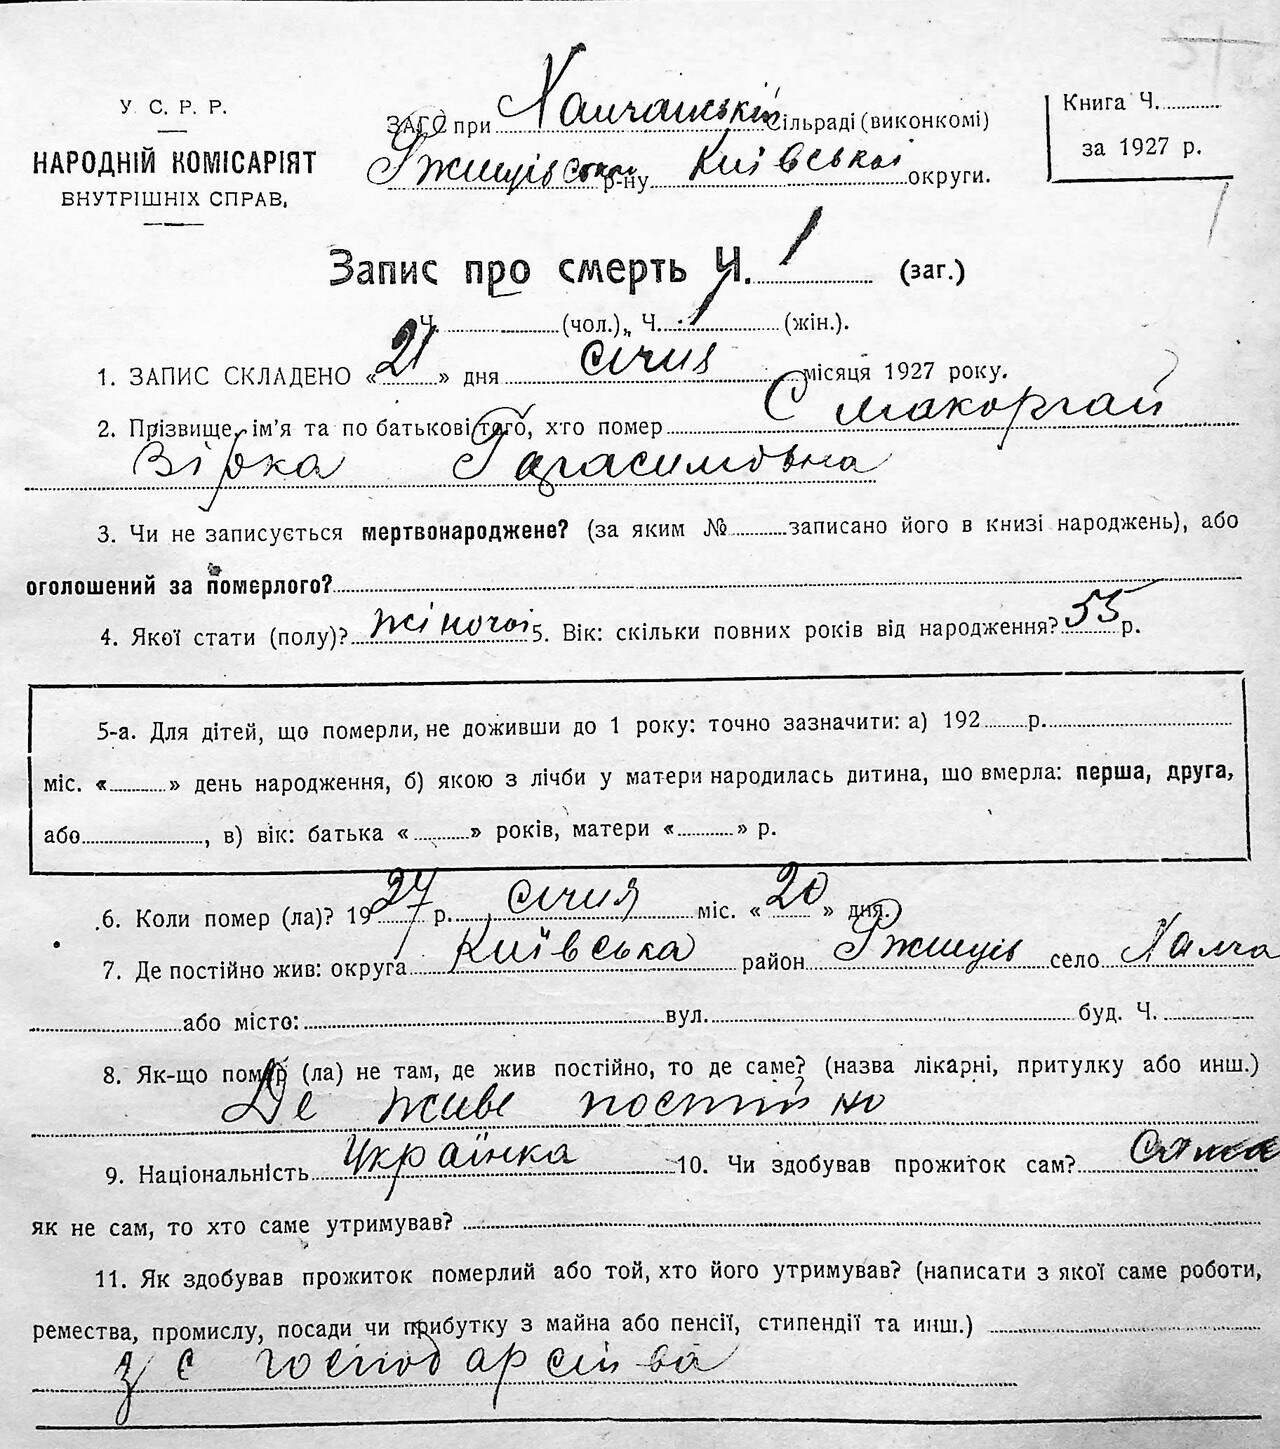 У. С. Р. Р.
НАРОДНІЙ КОМІСАРІЯТ
ВНУТРІШНІХ СПРАВ,
ЗАГС при Халчанській сільраді (виконкомі)
Ржищівськ р-ну Київської округи.
Книга Ч.
за 1927 р.
Запис про смерть Ч. 1 (заг.)
Ч. (чол.), Ч. 1 (жін.).
1. ЗАПИС СКЛАДЕНО « 21 » дня січня місяця 1927 року.
2. Прізвище, ім'я та по батькові того, хто помер Смакоргай
Вірка Гарасимовна
3. Чи не записується мертвонароджене? (за яким № записано його в книзі народжень), або
оголошений за померлого?
4. Якої стати (полу)? жіночоі 5. Вік: скільки повних років від народження? 55 р.
5-а. Для дітей, що померли, не доживши до 1 року: точно зазначити: а) 192 р.
міс. « » день народження, б) якою з лічби у матери народилась дитина, що вмерла: перша, друга,
або , в) вік: батька « » років, матери « » р.
6. Коли помер (ла)? 1927 р. січня міс. « 20 » дня.
7. Де постійно жив: округа Київська район Ржищів село Халча
або місто: вул. буд. Ч.
8. Як-що помер (ла) не там, де жив постійно, то де саме? (назва лікарні, притулку або инш.)
Де живе постійно
9. Національність Українка 10. Чи здобував прожиток сам? Сама
як не сам, то хто саме утримував?
11. Як здобував прожиток померлий або той, хто його утримував? (написати з якої саме роботи,
ремества, промислу, посади чи прибутку з майна або пенсії, стипендії та инш.)
з с господарства